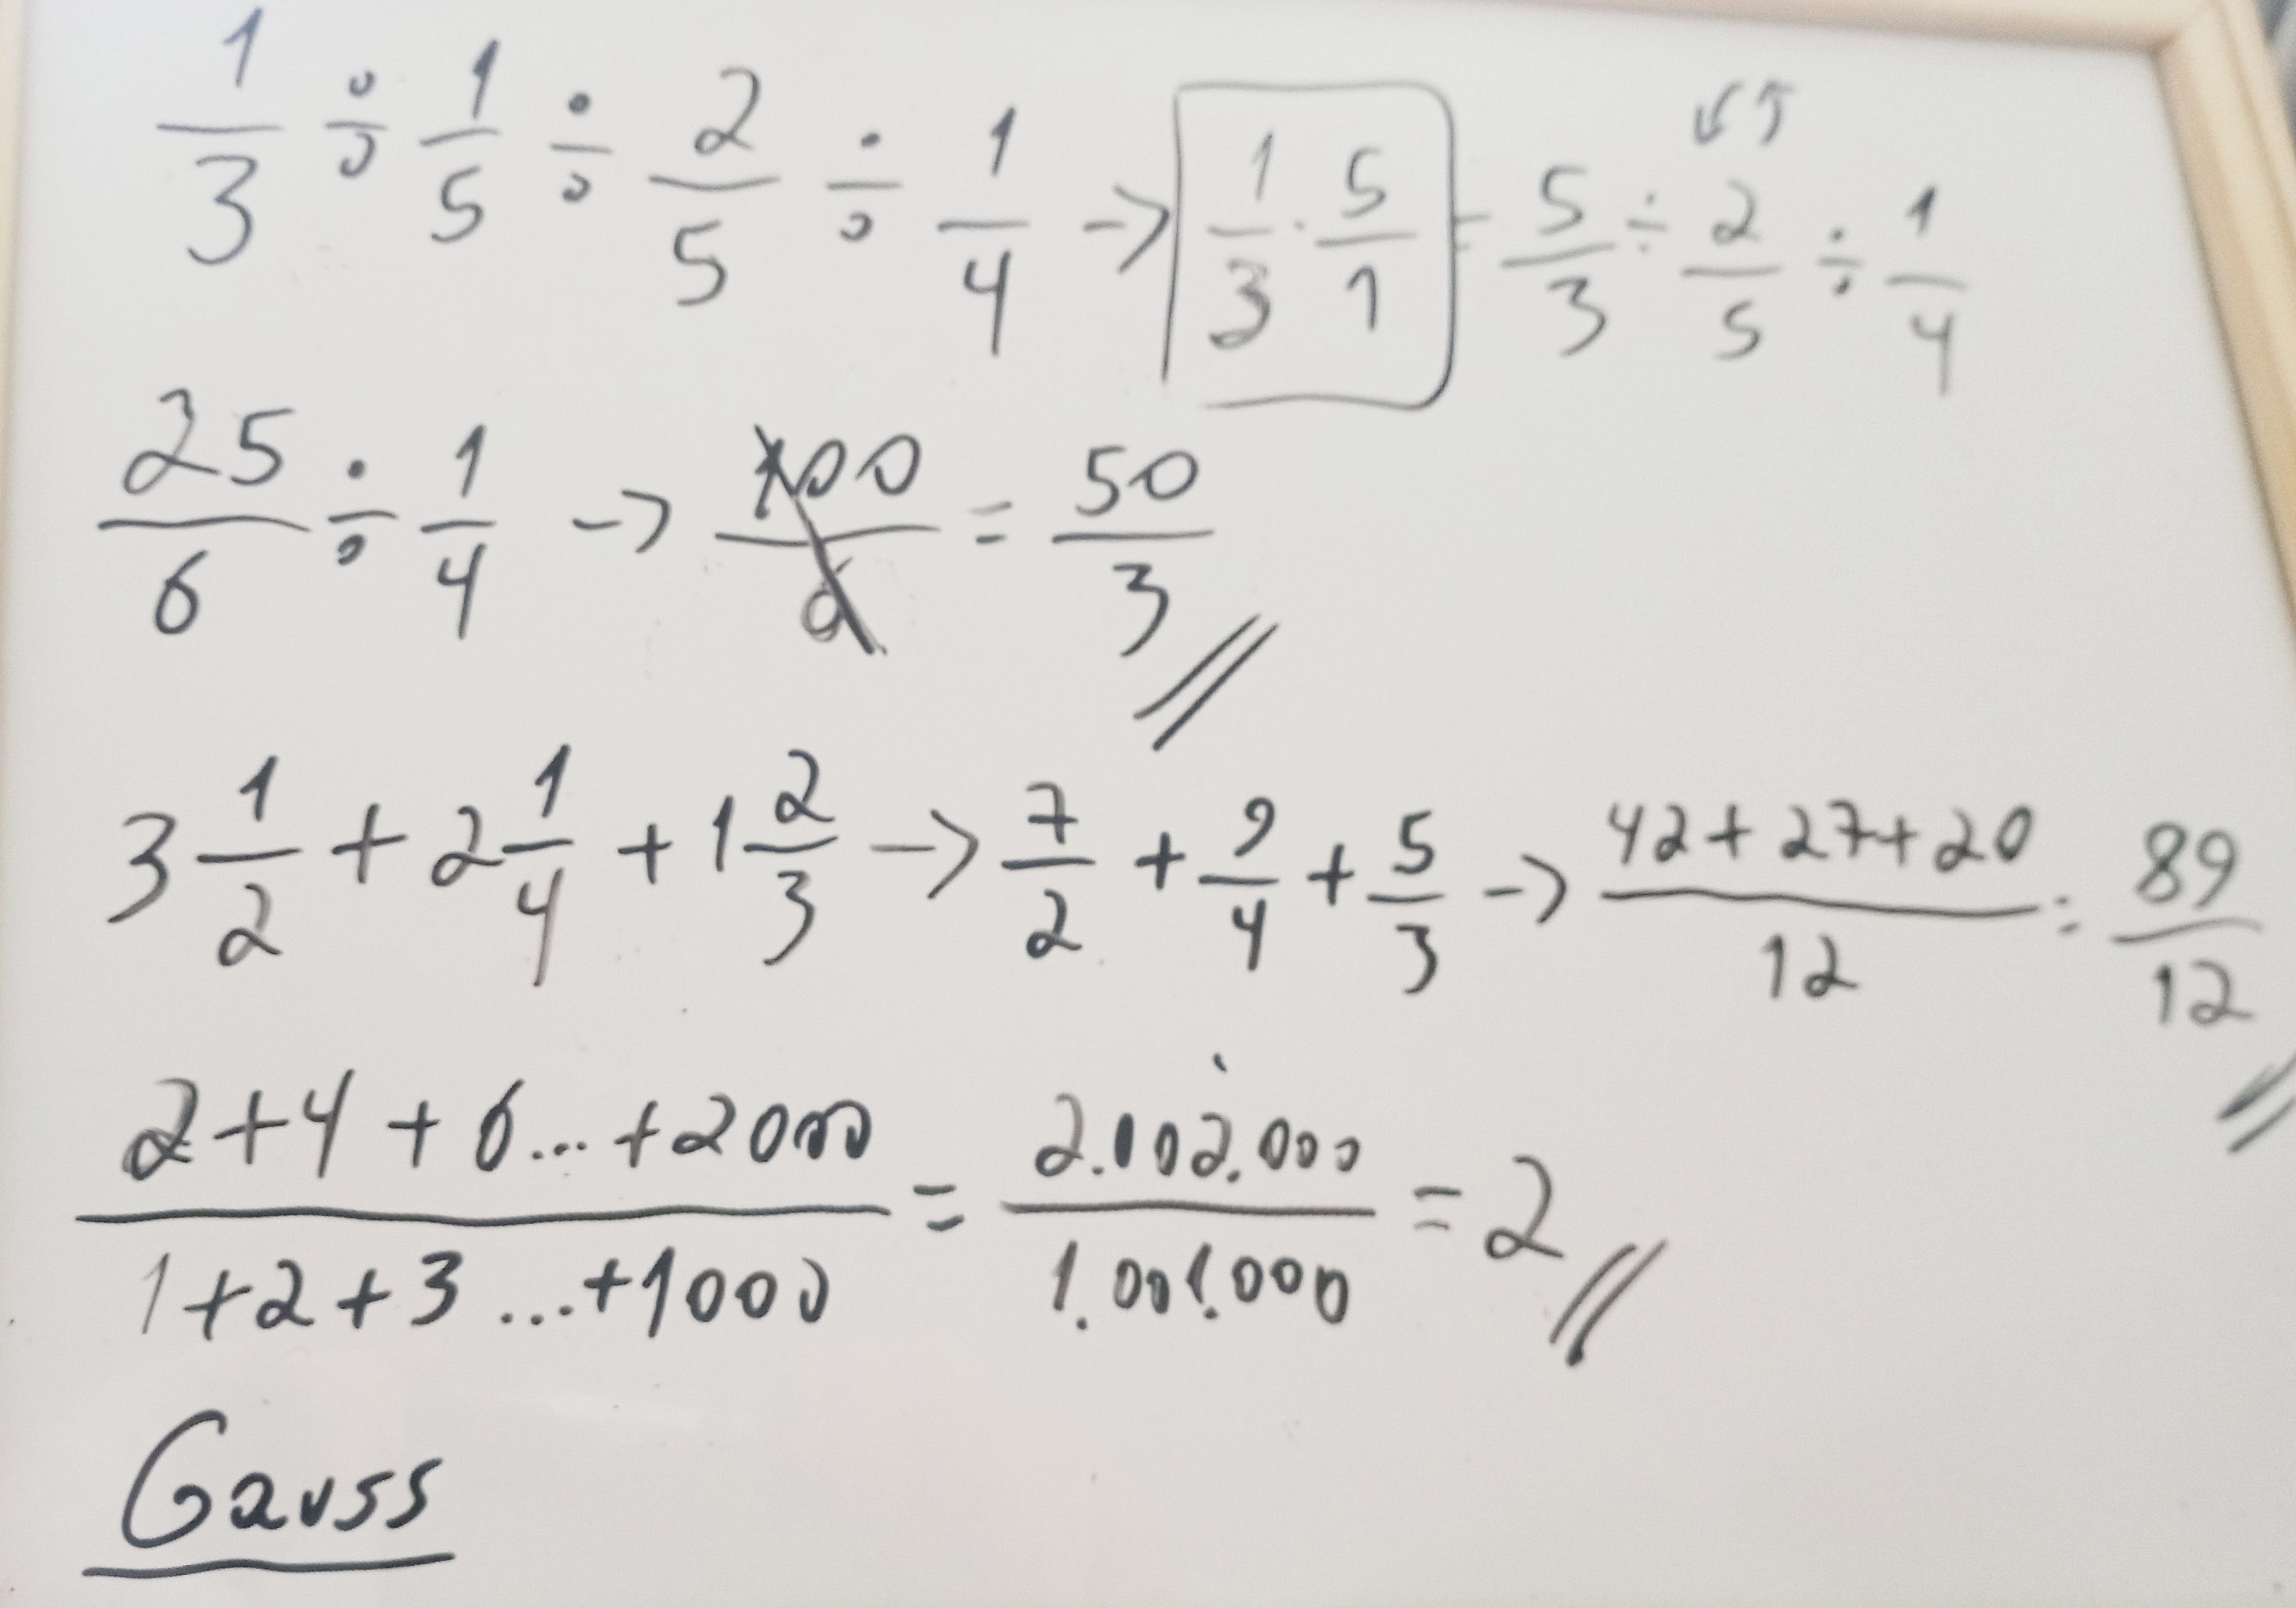 1/3 ÷ 1/5 ÷ 2/5 ÷ 1/4 → 1/3 · 5/1 = 5/3 ÷ 2/5 ÷ 1/4
25/6 ÷ 1/4 → 100/6 = 50/3
3 1/2 + 2 1/4 + 1 2/3 → 7/2 + 9/4 + 5/3 → 42+27+20/12 = 89/12
2+4+6...+2000/1+2+3...+1000 = 2.002.000/1.001.000 = 2
Gauss